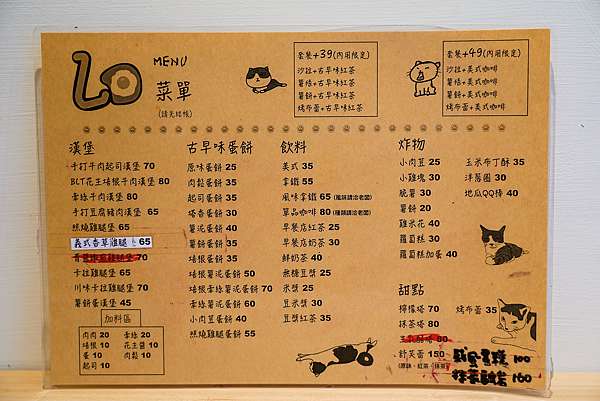 LO
MENU
菜單
(請先結帳)
套餐+39(內用限定)
沙拉+古早味紅茶
薯條+古早味紅茶
薯餅+古早味紅茶
烤布蕾+古早味紅茶
套餐+49(內用限定)
沙拉+美式咖啡
薯條+美式咖啡
薯餅+美式咖啡
烤布蕾+美式咖啡
漢堡
手打牛肉起司漢堡 70
BLT花生培根牛肉漢堡 80
牽絲牛肉漢堡 80
手打豆腐豬肉漢堡 65
照燒雞腿堡 65
義式香草雞腿 65
70
卡拉雞腿堡 65
川味卡拉雞腿堡 70
薯餅蛋漢堡 45
加料區
肉肉 20
培根 10
蛋 10
起司 10
牽絲 20
花生醬 10
肉鬆 10
古早味蛋餅
原味蛋餅 25
肉鬆蛋餅 35
起司蛋餅 35
塔香蛋餅 30
薯泥蛋餅 40
薯餅蛋餅 35
培根薯泥蛋餅 50
培根牽絲薯泥蛋餅 70
牽絲薯泥蛋餅 60
小肉豆蛋餅 40
照燒雞腿蛋餅 55
飲料
美式 35
拿鐵 55
風味拿鐵 65 (風味請洽老闆)
單品咖啡 80 (種類請洽老闆)
早餐店紅茶 25
早餐店奶茶 30
鮮奶茶 40
無糖豆漿 25
米漿 25
豆米漿 30
豆漿紅茶 35
炸物
小肉豆 25
小雞塊 30
脆薯 30
薯餅 20
雞米花 40
蘿蔔糕 30
蘿蔔糕加蛋 40
玉米布丁酥 35
洋蔥圈 30
地瓜QQ棒 40
甜點
檸檬塔 70
抹茶塔 80
80
舒芙蕾 150
(原味、紅茶、抹茶)
烤布蕾 35
100
160